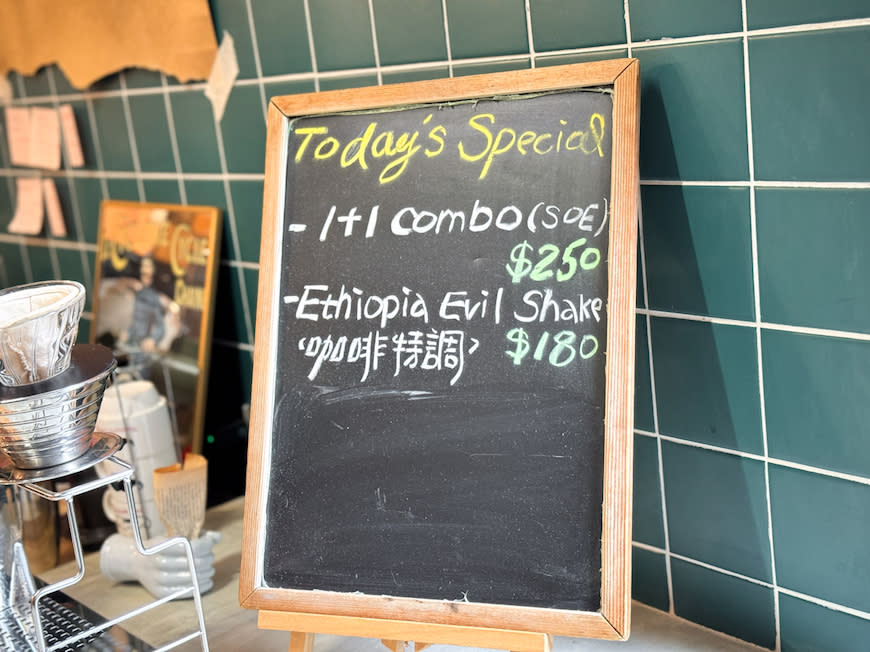 Today's Special
- 1+1 combo (SOE)
$250
- Ethiopia Evil Shake
'咖啡特調' $180